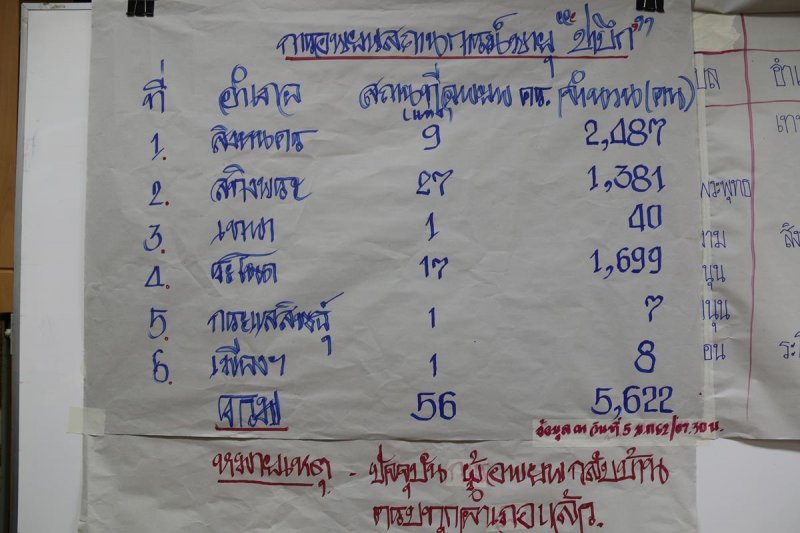 การอพยพสถานการณ์พายุ "ปาบึก"
ที่ อำเภอ สถานที่อพยพ ศร. จำนวน(คน)
(แห่ง)
1. สิงหนคร 9 2,487
2. สทิงพระ 27 1,381
3. เทพา 1 40
4. ระโนด 17 1,699
5. กระแสสินธุ์ 1 7
6. เมืองฯ 1 8
รวม 56 5,622
ข้อมูล ณ วันที่ 5 ม.ค.62/07.30 น.
หมายเหตุ - ปัจจุบัน ผู้อพยพกลับบ้าน
ครบทุกอำเภอแล้ว.
พระพุทธ
ระโ